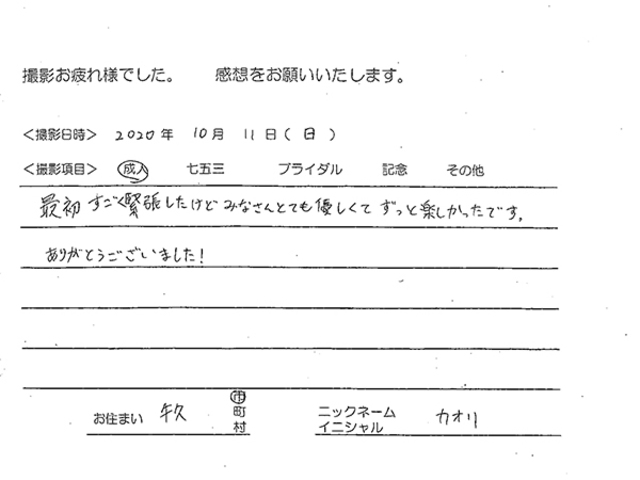 撮影お疲れ様でした。 感想をお願いいたします。
<撮影日時> 2020年 10月 11日(日)
<撮影項目> 成人 七五三 ブライダル 記念 その他
最初すごく緊張したけどみなさんとても優しくてずっと楽しかったです。
ありがとうございました!
お住まい 牛久 市町村 ニックネーム イニシャル カオリ